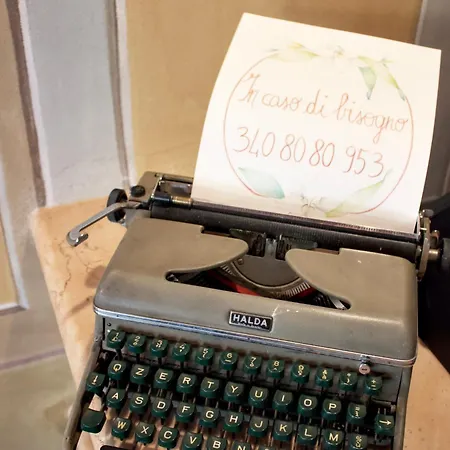 In caso di bisogno
340 80 80 953
HALDA
2 3 4 5 6 7 8 9
Q W E R T Y U I O P
A S D F G H J K L
Z X C V B N M